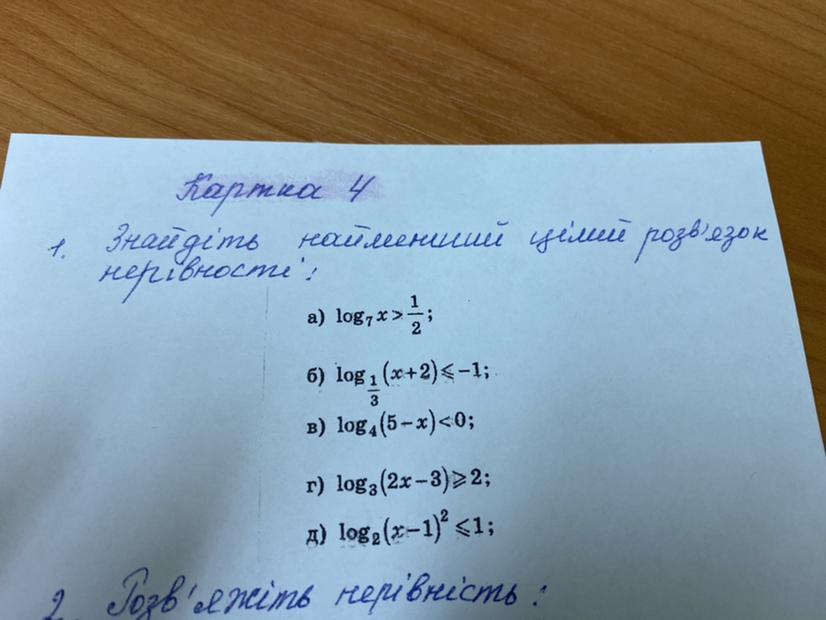 Картка 4
1. Знайдіть найменший цілий розв'язок
нерівності:
а) log₇ x > 1/2;
б) log_{1/3} (x+2) ⩽ −1;
в) log₄ (5−x) < 0;
г) log₃ (2x−3) ⩾ 2;
д) log₂ (x−1)² ⩽ 1;
2. Розв'яжіть нерівність: